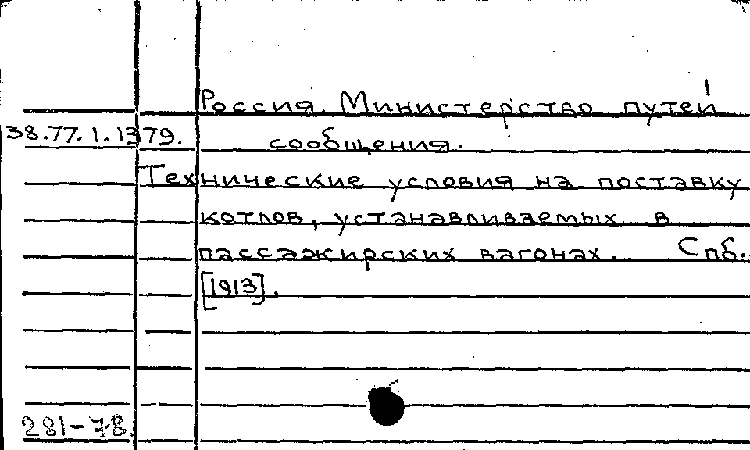 Россия. Министерство путей
38.77.1.1379. сообщения.
Технические условия на поставку
котлов, устанавливаемых в
пассажирских вагонах. Спб.
[1913].
281-78.